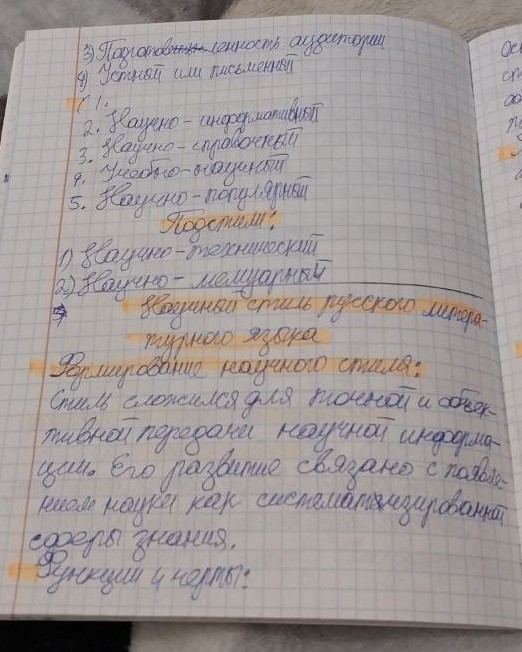 3) Подготовленность аудитории
4) Устный или письменный
1.
2. Научно-информативный
3. Научно-справочный
4. Учебно-научный
5. Научно-популярный
Подстили:
1) Научно-технический
2) Научно-мемуарный
Научный стиль русского литера-
турного языка
Формирование научного стиля:
Стиль сложился для точной и объек-
тивной передачи научной информа-
ции. Его развитие связано с появле-
нием науки как систематизированной
сферы знания.
Функции и черты: